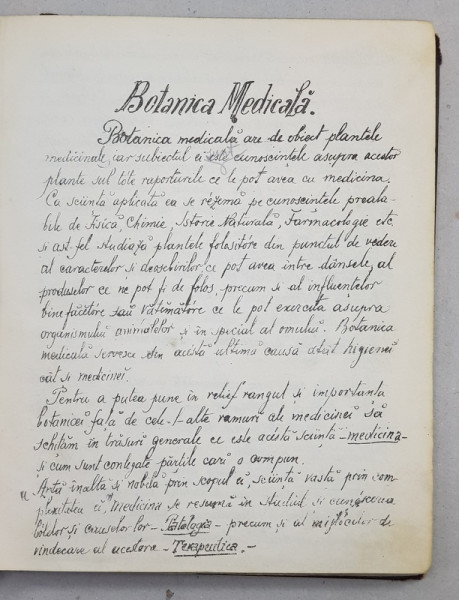 Botanica Medicală.
Botanica medicală are de obiect plantele
medicinale, iar subiectul ei este cunoscințele asupra acelor
plante sul tote reporturile ce le pot avea cu medicina.
Ca sciință aplicată ea se rezemă pe cunoscintele preala-
bile de Fisică, Chimie, Istorie Naturală, Farmacologie etc.
si ast-fel studiază plantele folositore din punctul de vedere
al caracterelor si deosebirilor, ce pot avea intre dânsele, al
produselor ce ne pot fi de folos, precum si al influentelor
bine făcĕtore sau vătămătore ce le pot exercita asupra
organismului animalelor si in special al omului. Botanica
medicală servesce din acéstă ultimă causă atât higienei
cât si medicinei.
Pentru a putea pune in relief rangul si importanta
botanicei față de cele-l-alte ramuri ale medicinei să
schităm in trăsuri generale ce este acéstă sciință - medicina -
si cum sunt părțile cari o compun.
Artă inaltă si nobilă prin scopul ei, sciintă vastă prin com-
plexitatea ei, Medicina se resumă in studiul si
bólelor si causelor lor - Patologia - precum si al mijlócelor de
vindecare al acestora - Terapeutica. -